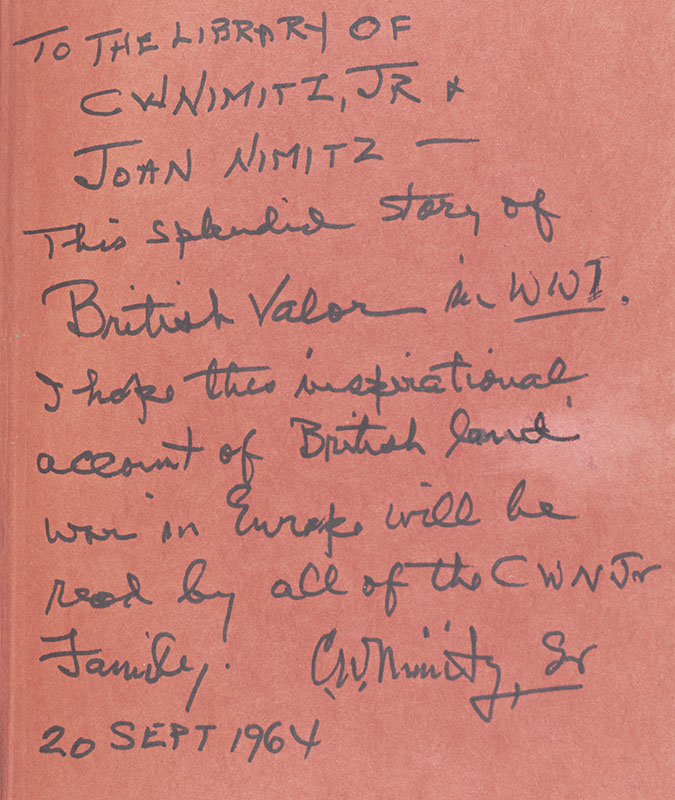 TO THE LIBRARY OF
CWNIMITZ, JR &
JOAN NIMITZ —
This splendid story of
British Valor in WWI.
I hope this inspirational
account of British land
war in Europe will be
read by all of the CWN Jr
Family. C.W. Nimitz, Sr
20 SEPT 1964